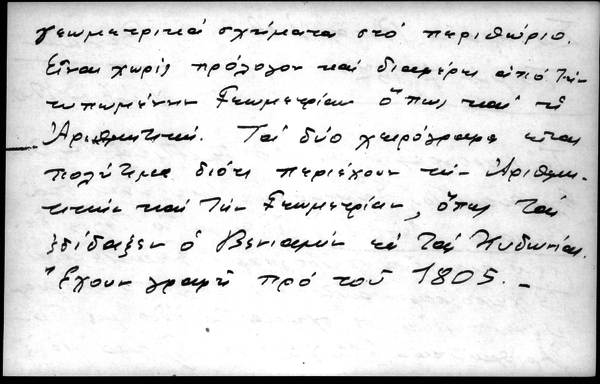 γεωμετρικά σχήματα στό περιθώριο.
Εἶναι χωρίς πρόλογον καί διαφέρει ἀπό τήν
τυπωμένην Γεωμετρίαν ὅπως καί ἡ
Ἀριθμητική. Τά δύο χειρόγραφα εἶναι
πολύτιμα διότι περιέχουν τήν Ἀριθμη-
τικήν καί τήν Γεωμετρίαν, ὅπως τάς
ἐδίδαξεν ὁ Βενιαμίν εἰς τάς Κυδωνίας.
Ἔχουν γραφῆ πρό τοῦ 1805. -